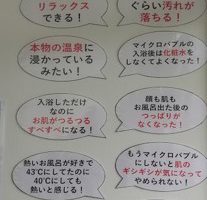 リラックス
できる！
ぐらい汚れが
落ちる！
本物の温泉に
浸かっている
みたい！
マイクロバブルの
入浴後は化粧水を
しなくてよくなった！
入浴しただけ
なのに
お肌がつるつる
すべすべになる！
顔も肌も
お風呂出た後の
つっぱりが
なくなった！
熱いお風呂が好きで
43℃にしてたのに
40℃にしても
熱いと感じる！
もうマイクロバブル
にしないと肌の
ギシギシが気になって
やめられない！